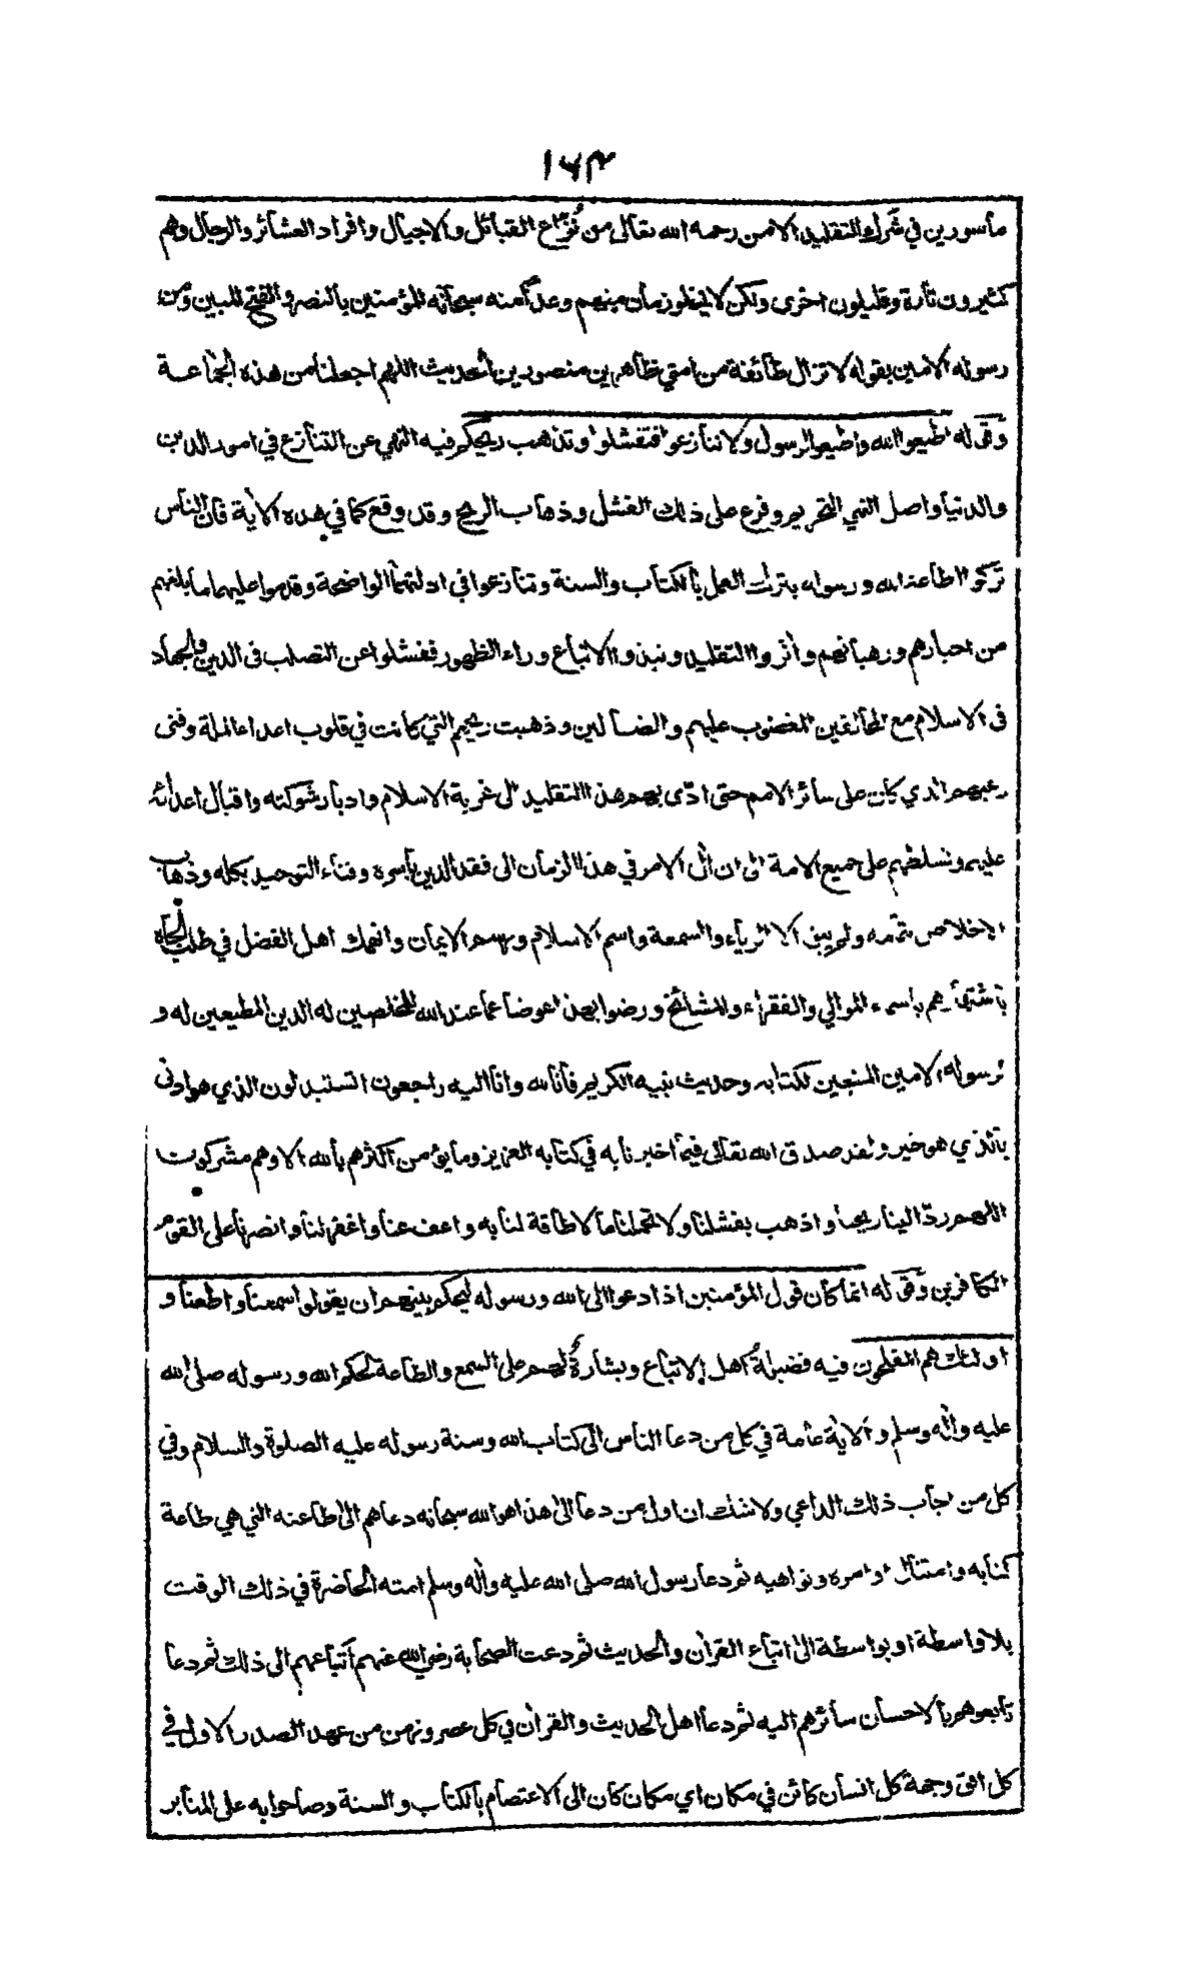 ١٦٣
مأسورين في شرك التقليد الا من رحمه الله تعالى من نُزّاع القبائل والاجيال وافراد العشائر والرجال وهم
كثيرون تارة وقليلون اخرى ولكن لا يخلو زمان منهم وعدًا منه سبحانه للمؤمنين بالنصر والفتح المبين ومن
رسوله الامين بقوله لا تزال طائفة من امتي ظاهرين منصورين الحديث اللهم اجعلنا من هذه الجماعة
وقوله اطيعوا الله واطيعوا الرسول ولا تنازعوا فتفشلوا وتذهب ريحكم فيه النهي عن التنازع في امور الدين
والدنيا واصل النهي التحريم وفرع على ذلك الفشل وذهاب الريح وقد وقع كما في هذه الاية فان الناس
تركوا اطاعة الله ورسوله بترك العمل بالكتاب والسنة وتنازعوا في ادلتهما الواضحة وقدموا عليهما ما بلغهم
من احبارهم ورهبانهم وأثروا التقليد ونبذوا الاتباع وراء الظهور ففشلوا عن التصلب فى الدين والجهاد
فى الاسلام مع المخالفين المغضوب عليهم والضالين وذهبت ريحهم التي كانت في قلوب اعداء الملة وفنى
رعبهم الذي كان على سائر الامم حتى ادّى بهم هذا التقليد الى غربة الاسلام وادبار شوكته واقبال اعدائه
عليهم وتسلطهم على جميع الامة الى ان أل الامر في هذا الزمان الى فقد الدين بأسره وفناء التوحيد بكله وذهاب
الاخلاص بتمامه ولم يبق الا الرياء والسمعة واسم الاسلام ورسم الايمان وانهمك اهل الفضل في طلب الجاه
باشتهارهم باسماء الموالي والفقراء والمشائخ ورضوا بهذا عوضا عما عند الله للمخلصين له الدين المطيعين له و
لرسوله الامين المتبعين لكتابه وحديث نبيه الكريم فانا لله وانا اليه راجعون اتستبدلون الذي هو ادنى
بالذي هو خير ولقد صدق الله تعالى فيما اخبرنا به في كتابه العزيز وما يؤمن اكثرهم بالله الا وهم مشركون
اللهم ردّ الينا ريحنا واذهب بفشلنا ولا تحملنا ما لا طاقة لنا به واعف عنا واغفر لنا وانصرنا على القوم
الكافرين وقوله انما كان قول المؤمنين اذا دعوا الى الله ورسوله ليحكم بينهم ان يقولوا سمعنا واطعنا و
اولئك هم المفلحون فيه فضيلةٌ لاهل الاتباع وبشارةٌ لهم على السمع والطاعة لحكم الله ورسوله صلى الله
عليه واٰله وسلم والاية عامة في كل من دعا الناس الى كتاب الله وسنة رسوله عليه الصلوة والسلام وفي
كل من اجاب ذلك الداعي ولا شك ان اول من دعا الى هذا هو الله سبحانه دعاهم الى طاعته التي هي طاعة
كتابه وامتثال اوامره ونواهيه ثم دعا رسول الله صلى الله عليه واٰله وسلم امته الحاضرة في ذلك الوقت
بلا واسطة او بواسطة الى اتباع القرأن والحديث ثم دعت الصحابة رضي الله عنهم اتباعهم الى ذلك ثم دعا
تابعوهم بالاحسان سائرهم اليه ثم دعا اهل الحديث والقرأن في كل عصر وزمن من عهد الصدر الاول في
كل افق وجهة كل انسان كائن في مكان اي مكان كان الى الاعتصام بالكتاب والسنة وصاحوا به على المنابر